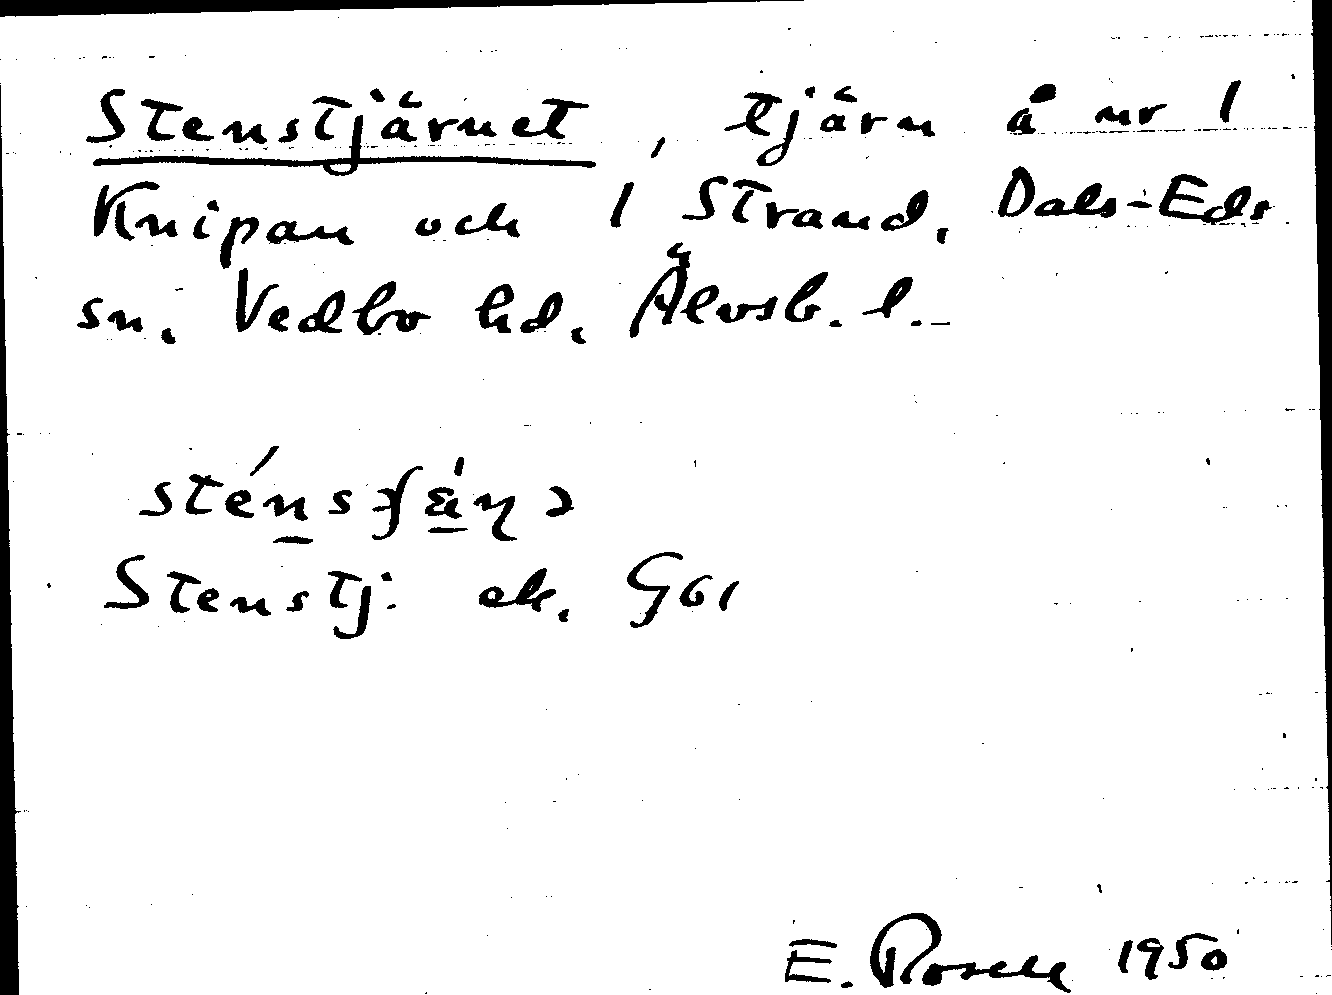 Stenstjärnet, tjärn å nr 1
Knipan och 1 Strand, Dals-Eds
sn, Vedbo hd, Älvsb. l.
Stenstj: ek. G61
E. Rosell 1950